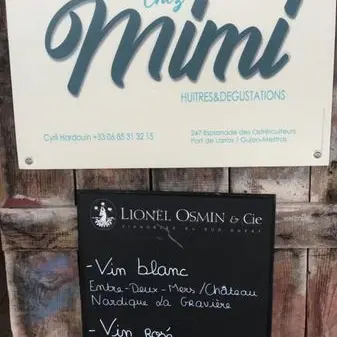 chez
mimi
HUITRES&DEGUSTATIONS
Cyril Hardouin +33 06 85 31 32 15
247 Esplanade des Ostréiculteurs
Port de Larros / Gujan-Mestras
LIONEL OSMIN & Cie
VIGNOBLES DU SUD OUEST
- Vin blanc
Entre-Deux-Mers / Château
Nardique La Gravière
- Vin Rosé